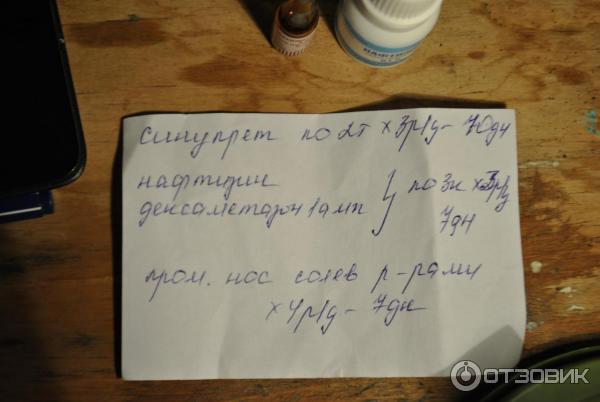 НАФТИЗИН
синупрет по 2т х 3р/д - 10дн
нафтизин
дексаметазон 1 амп } по 3к х 3р/д
7дн
пром. нос солев р-рами
х 4р/д - 7дн
ОТЗОВИК